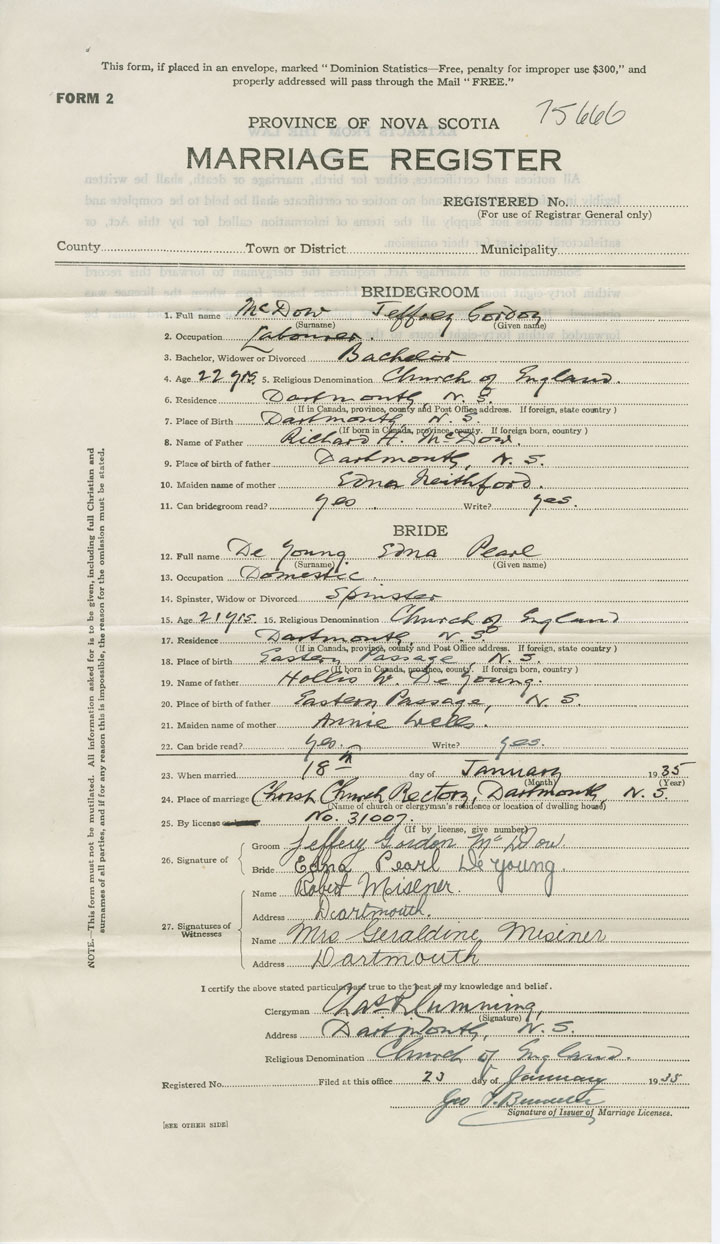 This form, if placed in an envelope, marked “ Dominion Statistics—Free, penalty for improper use $300,” and
properly addressed will pass through the Mail “ FREE.”
FORM 2
75666
PROVINCE OF NOVA SCOTIA
MARRIAGE REGISTER
REGISTERED No.
(For use of Registrar General only)
County Town or District Municipality
BRIDEGROOM
1. Full name McDow Jeffrey Gordon
(Surname) (Given name)
2. Occupation Labourer.
3. Bachelor, Widower or Divorced Bachelor
4. Age 22 yrs. 5. Religious Denomination Church of England.
6. Residence Dartmouth, N. S.
(If in Canada, province, county and Post Office address. If foreign, state country )
7. Place of Birth Dartmouth, N. S.
(If born in Canada, province, county. If foreign born, country )
8. Name of Father Richard H. McDow.
9. Place of birth of father Dartmouth, N. S.
10. Maiden name of mother Edna
11. Can bridegroom read? yes Write? yes.
BRIDE
12. Full name De Young Edna Pearl
(Surname) (Given name)
13. Occupation Domestic.
14. Spinster, Widow or Divorced Spinster
15. Age 21 yrs. 16. Religious Denomination Church of England
17. Residence Dartmouth, N. S.
(If in Canada, province, county and Post Office address. If foreign, state country )
18. Place of birth Eastern Passage, N. S.
(If born in Canada, province, county. If foreign born, country )
19. Name of father Hollis W. De Young.
20. Place of birth of father Eastern Passage, N. S.
21. Maiden name of mother Annie Wells.
22. Can bride read? yes. Write? yes.
23. When married 18th day of January 1935
(Month) (Year)
24. Place of marriage Christ Church Rectory, Dartmouth, N. S.
(Name of church or clergyman's residence or location of dwelling house)
25. By license No. 31007.
(If by license, give number)
26. Signature of
Groom Jeffery Gordon McDow.
Bride Edna Pearl DeYoung.
27. Signatures of Witnesses
Name Robert Misener.
Address Dartmouth.
Name Mrs Geraldine Misener
Address Dartmouth
I certify the above stated particulars are true to the best of my knowledge and belief.
Clergyman Chas R Cumming,
(Signature)
Address Dartmouth, N. S.
Religious Denomination Church of England.
Registered No. Filed at this office 23 day of January 1935
Geo
Signature of Issuer of Marriage Licenses.
[SEE OTHER SIDE]
NOTE.—This form must not be mutilated. All information asked for is to be given, including full Christian and
surnames of all parties, and if for any reason this is impossible, the reason for the omission must be stated.